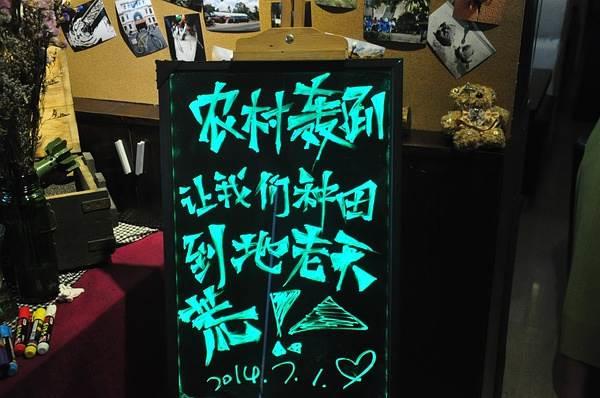 农村轰趴
让我们种田
到地老天
荒!
2014.7.1.